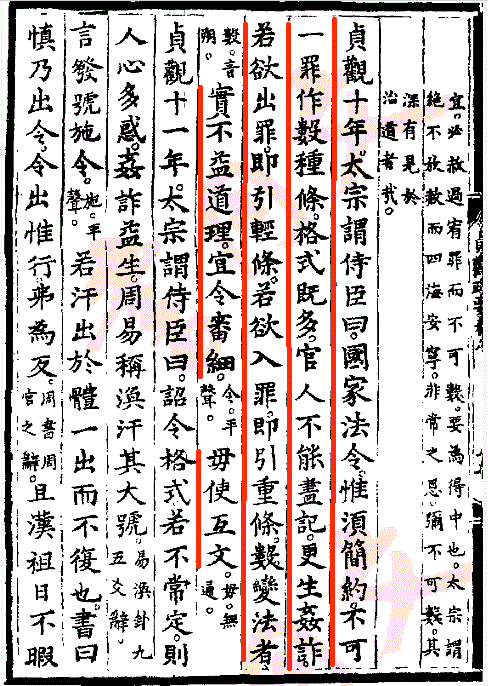 宜。必赦過宥罪而不可數。要為得中也。太宗謂
絶不放赦而四海安寧。非常之恩。彌不可數。其
深有見於
治道者哉。
貞觀十年。太宗謂侍臣曰。國家法令。惟須簡約。不可
一罪作數種條。格式既多。官人不能盡記。更生姦詐
若欲出罪。即引輕條。若欲入罪。即引重條。數變法者
數。音朔。實不益道理。宜令審細。令。平聲。毋使互文。毋。無通。
貞觀十一年。太宗謂侍臣曰。詔令格式若不常定。則
人心多惑。姦詐益生。周易稱渙汗其大號。易渙卦九五爻辭。
言發號施令。施。平聲。若汗出於體一出而不復也。書曰
慎乃出令。令出惟行。弗為反。周書周官之辭。且漢祖日不暇